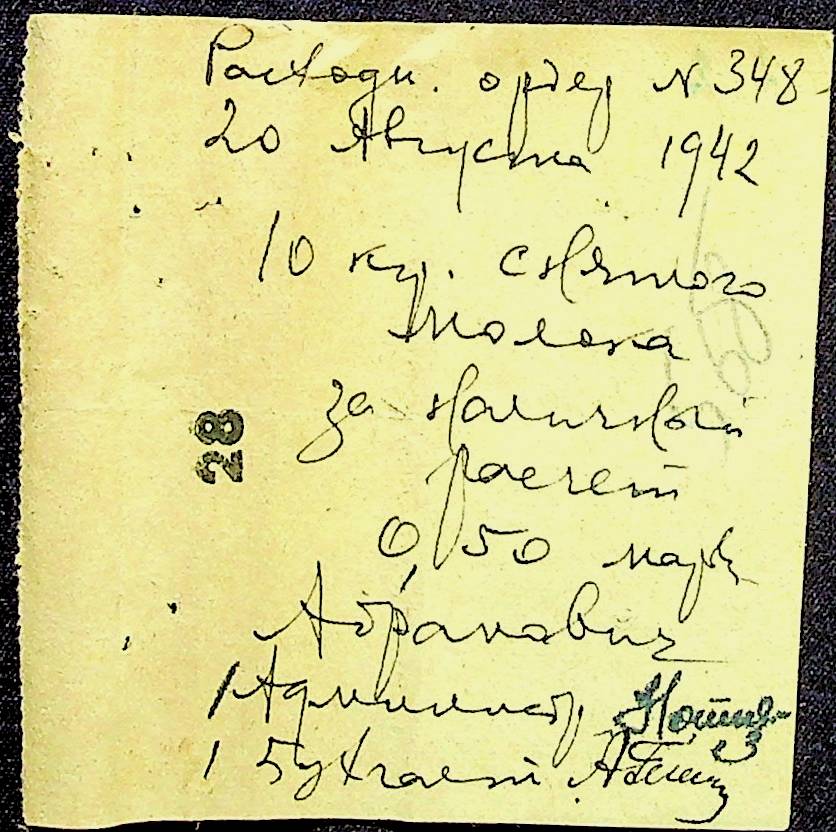 Расходн. ордер N 348
20 Августа 1942
10 кгр. снятого
молока
за наличный
расчет
0,50 марк
Абрамович
/Администр.
/ Бухгалтер
28